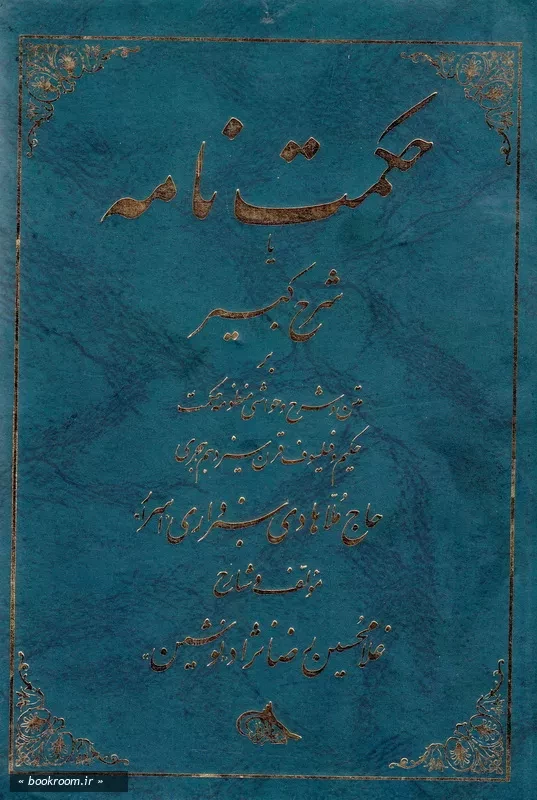 حکمت نامه
یا
شرح کبیر
بر
متن و شرح و حواشی منظومه حکمت
حکیم و فیلسوف قرن سیزدهم هجری
حاج ملا هادی سبزواری «اسرار»
مؤلف و شارح
غلامحسین رضانژاد «نوشین»
« bookroom.ir »